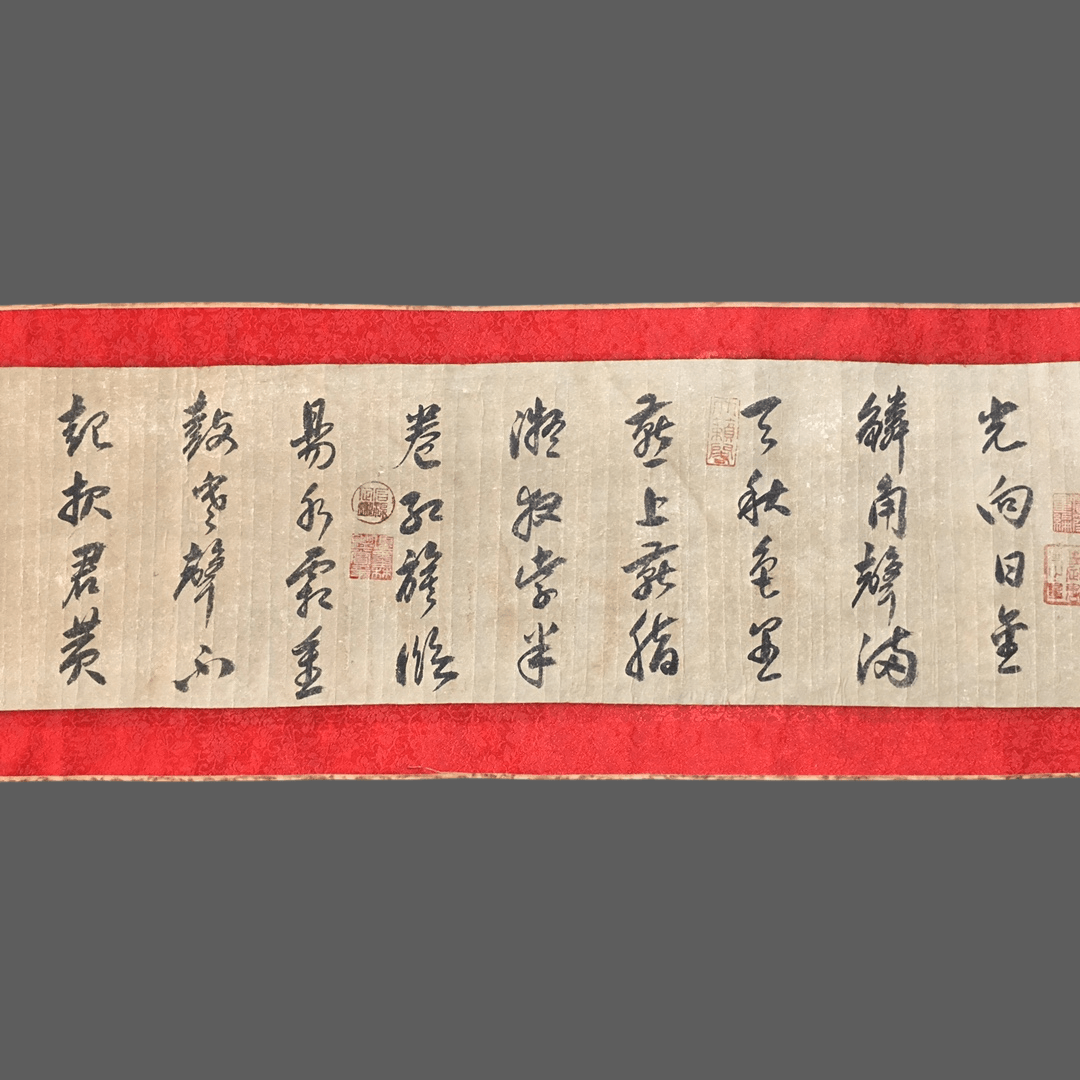 光向日金
鱗角聲滿
天秋色里
燕上燕脂
凝夜紫半
卷紅旗臨
易水霜重
鼓寒聲不
起報君黃